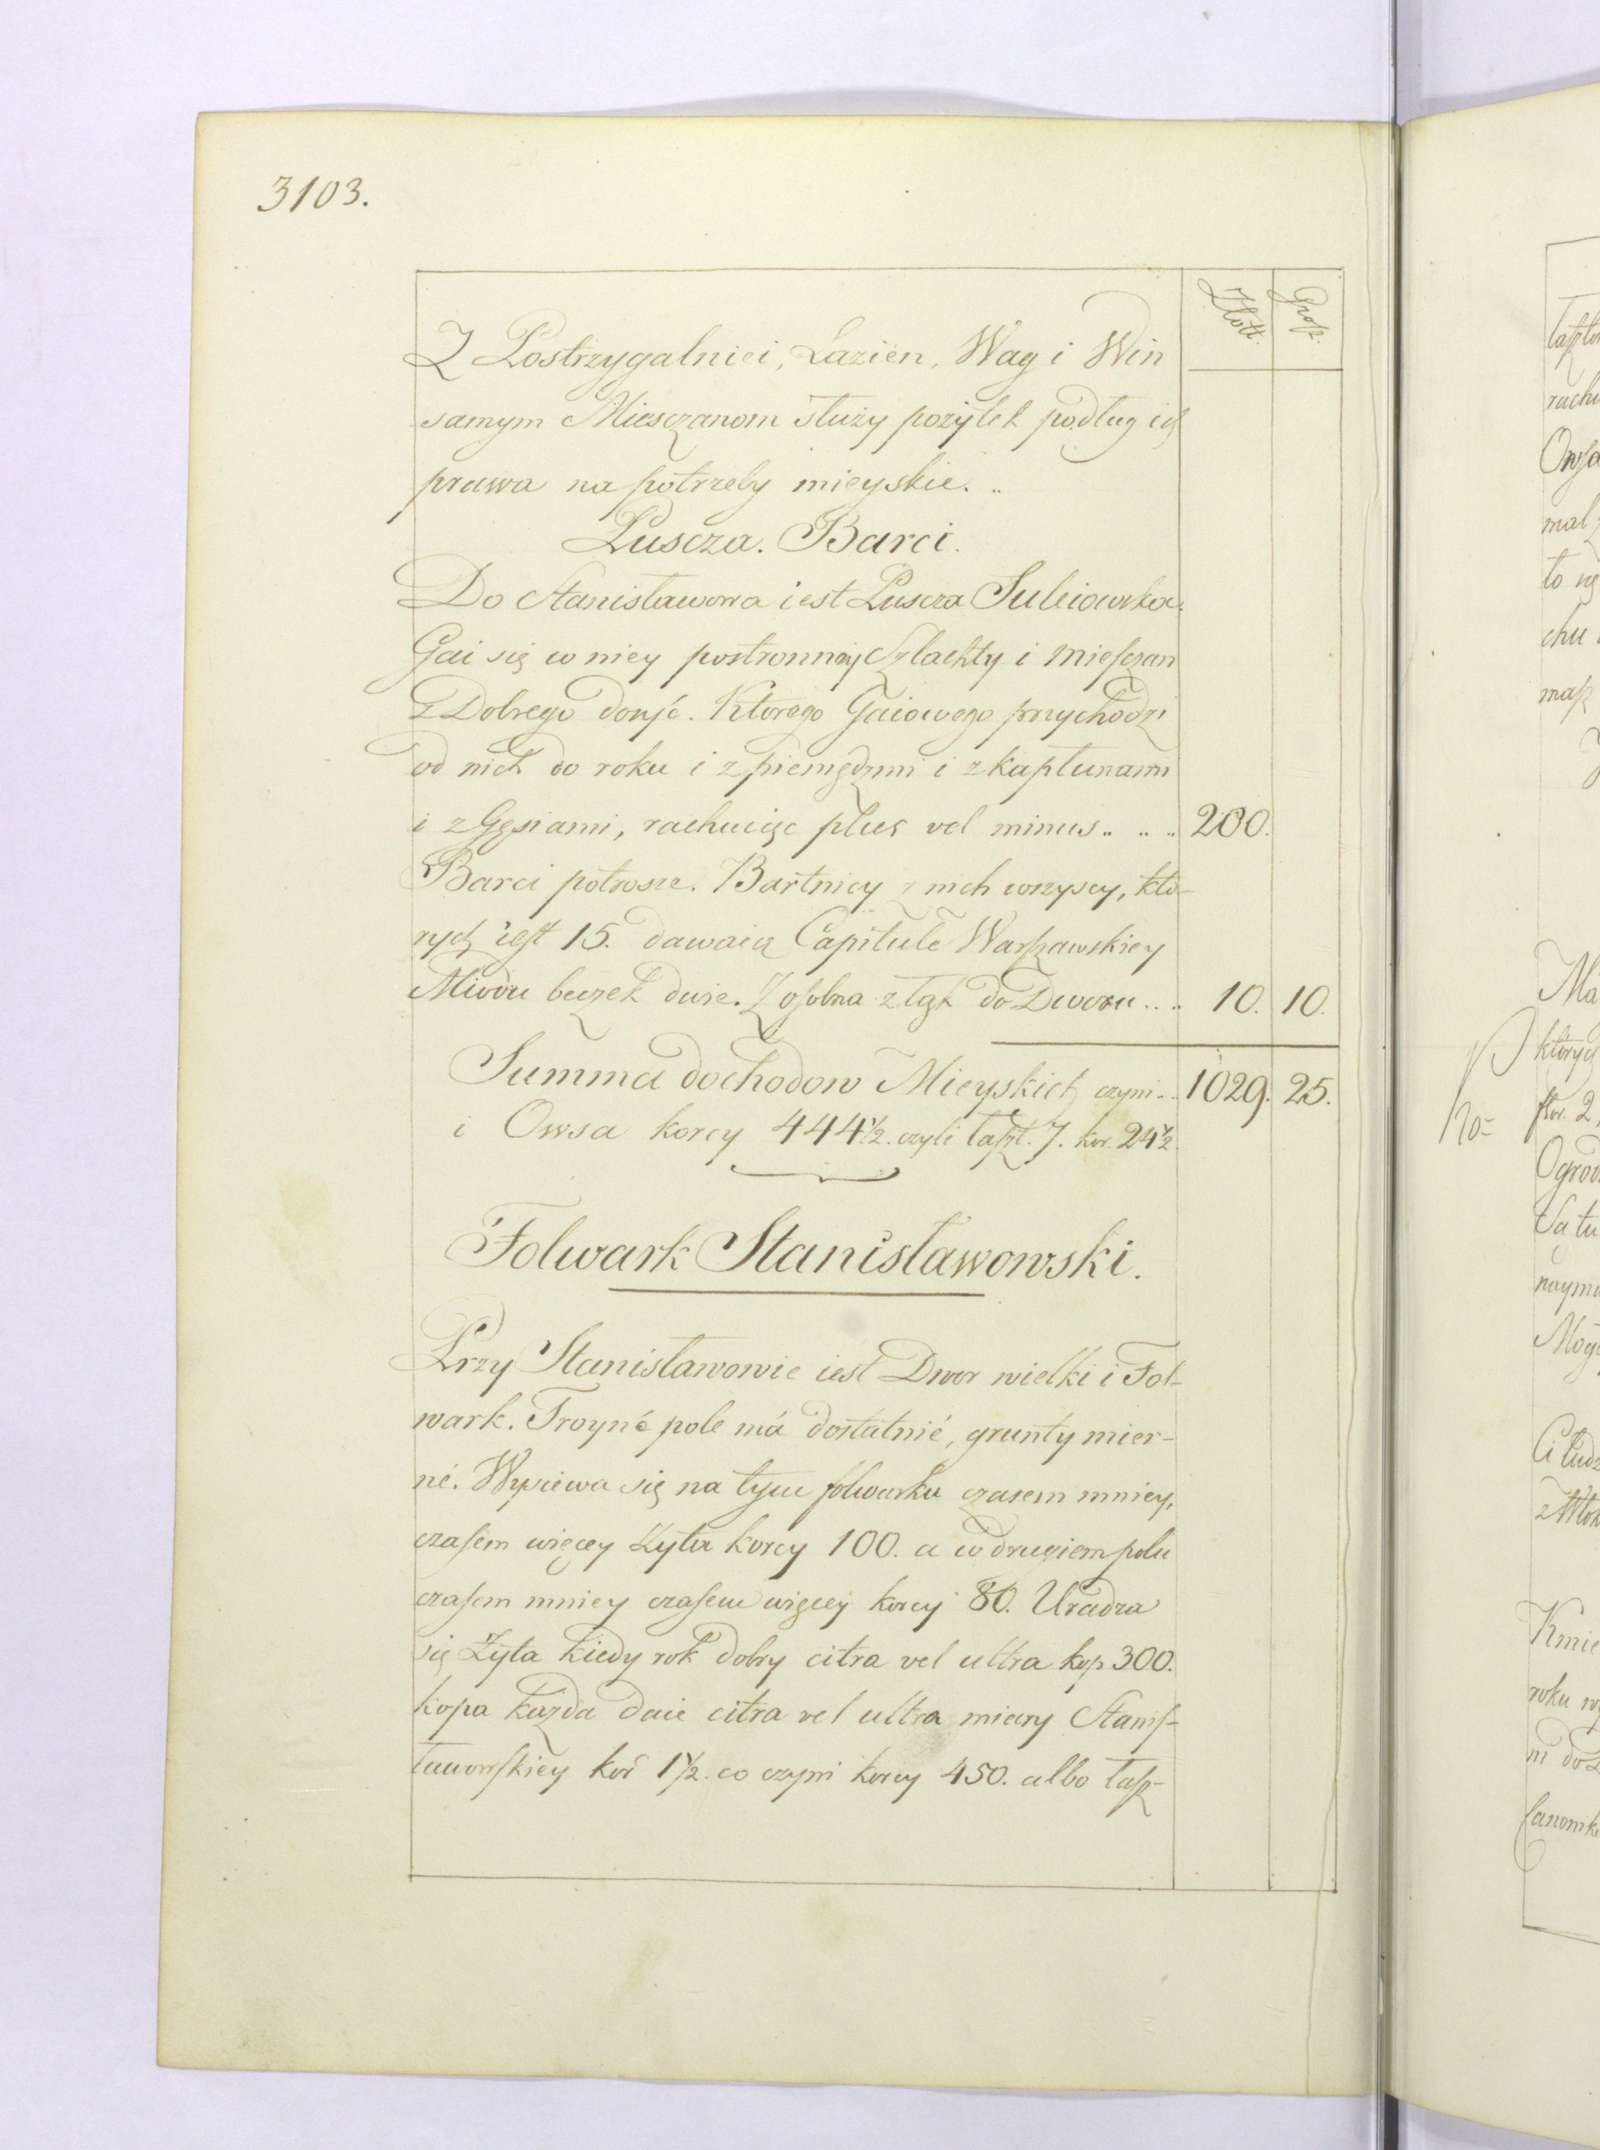 3103.
Złott. Grosz.
Z Postrzygalniei, Łazien, Wag i Win
samym Miesczanom służy pożytek podług ich
prawa na potrzeby mieyskie.
Puscza. Barci.
Do Stanisławowa iest Puscza Suleiowska.
Gai się w niey postronney Szlachty i Miesczan
z Dobrego dosyć. Ktorego Gaiowego przychodzi
od nich do roku i z pieniędzmi i z kapłunami
i z Gęsiami, rachuiąc plus vel minus .. .. .. 200.
Barci potrosze. Bartnicy z nich wszyscy, kto-
rych iest 15. dawaią Capitule Warszawskiey
Miodu beczek dwie. Z osobna z łąk do Dworu .. .. 10. 10.
Summa dochodow Mieyskich czyni .. 1029. 25.
i Owsa korcy 444½. czyli łaszt. 7. kor. 24½.
Folwark Stanisławowski.
Przy Stanisławowie iest Dwor wielki i Fol-
wark. Troyné pole má dostatnié, grunty mier-
né. Wysiewa się na tym folwarku czasem mniey,
czasem więcey Zyta korcy 100. a w drugiem polu
czasem mniey czasem więcey korcy 80. Uradza
się Zyta kiedy rok dobry citra vel ultra kop 300.
kopa każda daie citra vel ultra miary Stanis-
ławowskiey kor 1½. co czyni korcy 450. albo łasz-